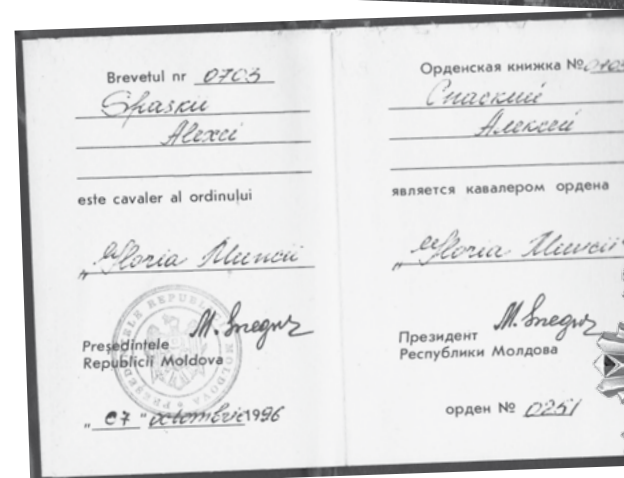 Brevetul nr 0703
Spaskii
Alexei
este cavaler al ordinului
„Gloria Muncii
M. Snegur
Președintele
Republicii Moldova
„07" octombrie 1996
Орденская книжка № 0703
Спаский
Алексей
является кавалером ордена
„Gloria Muncii"
M. Snegur
Президент
Республики Молдова
орден № 0251